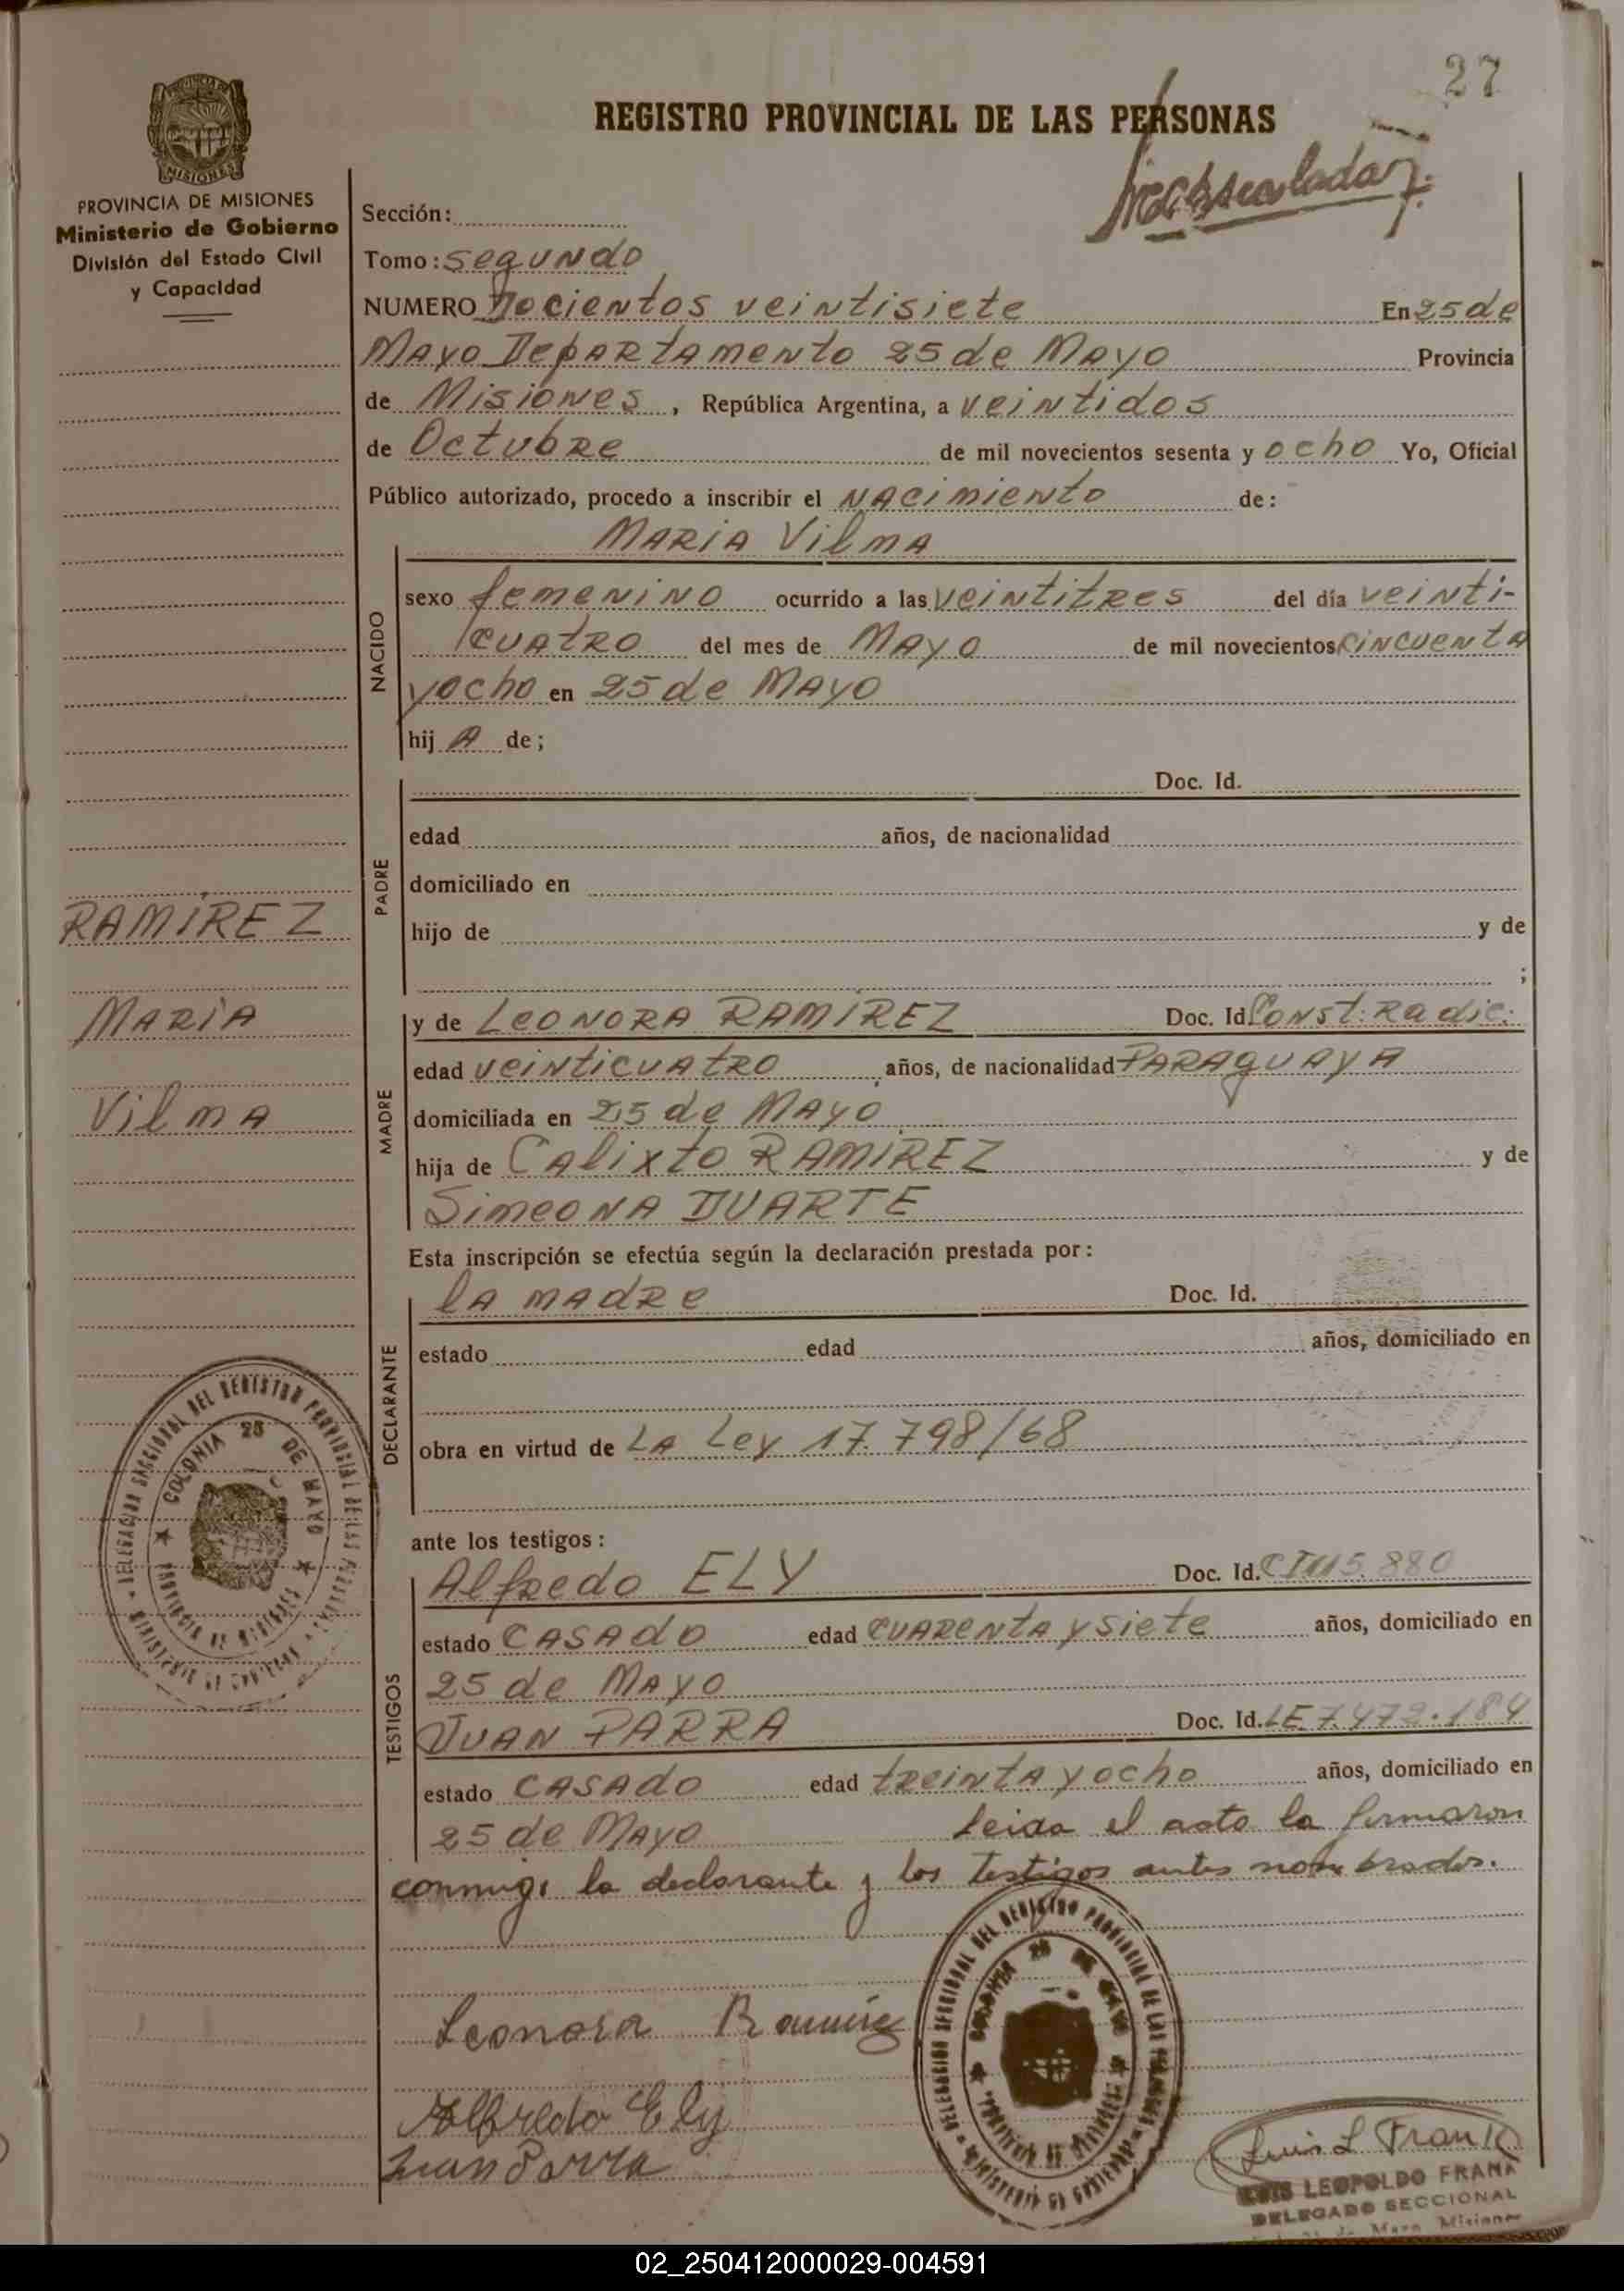 27
REGISTRO PROVINCIAL DE LAS PERSONAS
PROVINCIA DE MISIONES
Ministerio de Gobierno
División del Estado Civil
y Capacidad
Sección:
Tomo: segundo
NUMERO Docientos veintisiete En 25 de
Mayo Departamento 25 de Mayo Provincia
de Misiones, República Argentina, a veintidos
de Octubre de mil novecientos sesenta y ocho Yo, Oficial
Público autorizado, procedo a inscribir el nacimiento de:
MARIA Vilma
NACIDO
sexo femenino ocurrido a las veintitres del día veinti-
cuatro del mes de Mayo de mil novecientos cincuenta
y ocho en 25 de Mayo
hij A de;
PADRE
Doc. Id.
edad años, de nacionalidad
domiciliado en
hijo de y de
;
RAMIREZ
MARIA
Vilma
MADRE
y de LEONORA RAMIREZ Doc. Id. Const: Radic:
edad veinticuatro años, de nacionalidad PARAguAyA
domiciliada en 25 de Mayo
hija de Calixto RAMIREZ y de
Simeona DUARTE
Esta inscripción se efectúa según la declaración prestada por:
DECLARANTE
la madre Doc. Id.
estado edad años, domiciliado en
obra en virtud de LA Ley 17.798/68
ante los testigos:
TESTIGOS
Alfredo ELY Doc. Id. 880
estado CASAdo edad cuarenta y siete años, domiciliado en
25 de Mayo
JUAN PARRA Doc. Id. LE 7.472.184
estado CASAdo edad treinta y ocho años, domiciliado en
25 de Mayo Leida el acta la firmaron
conmigo la declarante y los testigos antes nombrados.
DELEGACION SECCIONAL DEL REGISTRO PROVINCIAL DE LAS PERSONAS
COLONIA 25 DE MAYO
PROVINCIA DE MISIONES
MINISTERIO DE GOBIERNO
DELEGACION SECCIONAL DEL REGISTRO PROVINCIAL DE LAS PERSONAS
COLONIA 25 DE MAYO
PROVINCIA DE MISIONES
MINISTERIO DE GOBIERNO
Leonora Ramirez
Alfredo Ely
Juan Parra
Luis L Frank
LUIS LEOPOLDO FRANK
DELEGADO SECCIONAL
25 de Mayo, Misiones
02_250412000029-004591